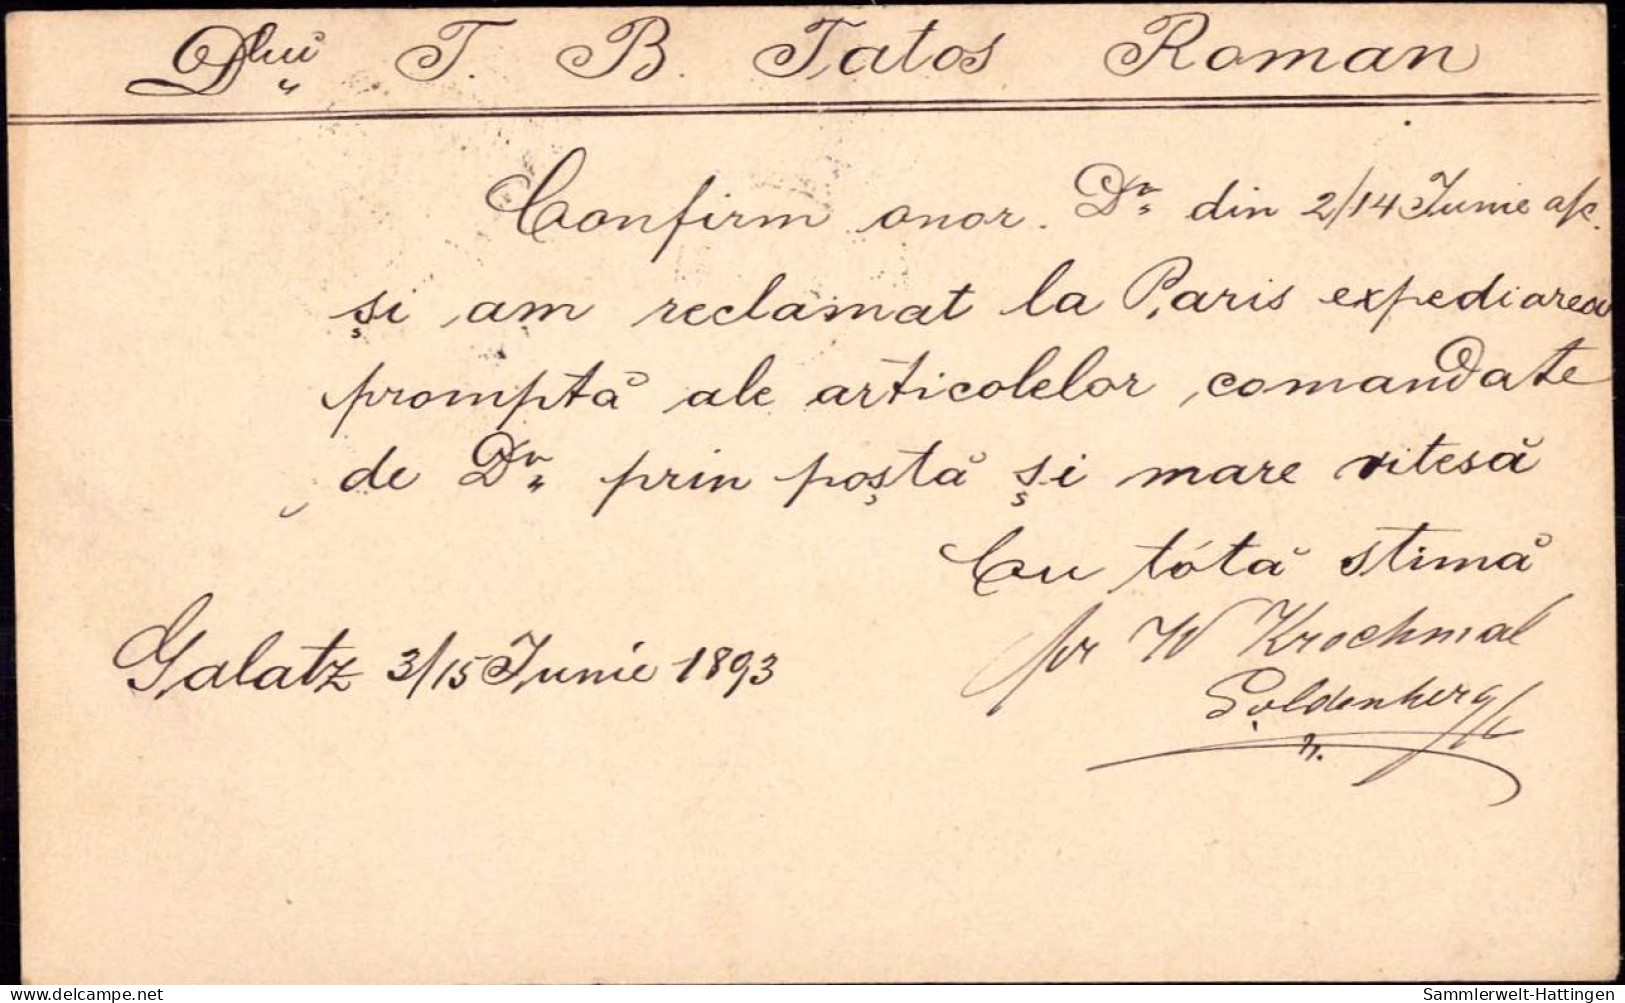 Dlui T. B. Tatos Roman
Confirm onor. Dv. din 2/14 Iunie a/c.
și am reclamat la Paris expediarea
promptă ale articolelor comandate
de Dv. prin poștă și mare vitesă
Cu tótă stimă
pr W Krochmal
Galatz 3/15 Iunie 1893
Goldenberg
delcampe.net
Sammlerwelt-Hattingen